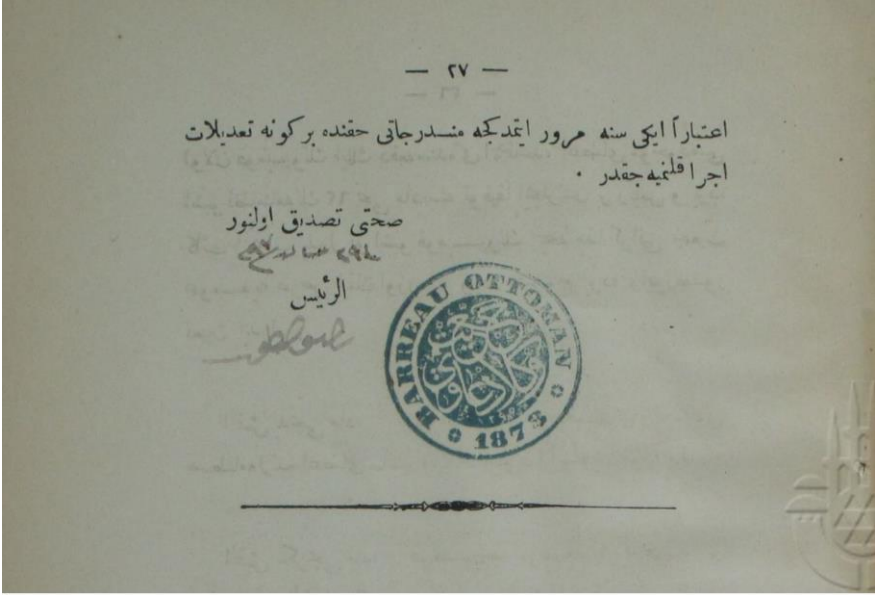 — ٢٧ —
اعتباراً ایکی سنه مرور ایتمدکجه مندرجاتی حقنده بر کونه تعدیلات
اجرا قلنمیه جقدر .
صحتی تصدیق اولنور
الرئیس
BARREAU OTTOMAN
1873